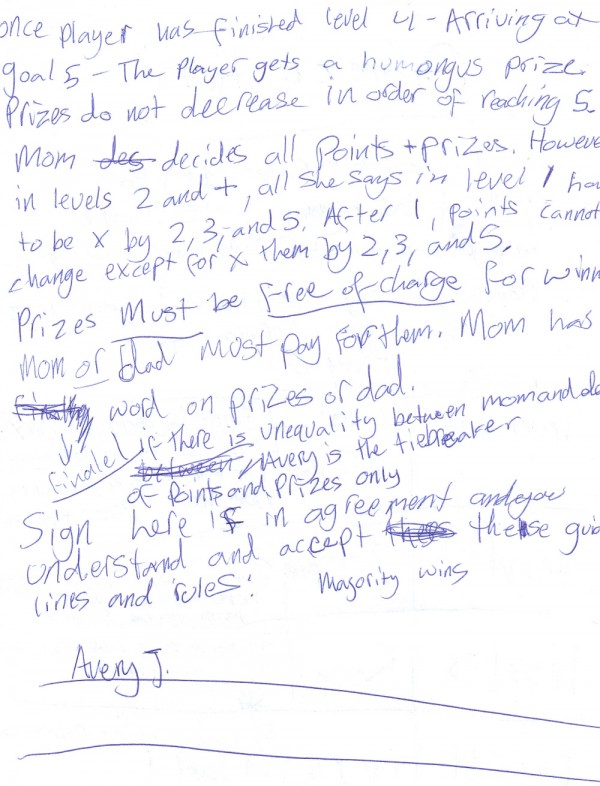 once player has finished level 4 - Arriving at
goal 5 - The Player gets a humongus prize.
Prizes do not decrease in order of reaching 5.
Mom des decides all points + prizes. Howeve
in levels 2 and +, all she says in level 1 ha
to be x by 2, 3, and 5. After 1, points cannot
change except for x them by 2, 3, and 5.
Prizes must be free of charge for winn
Mom or dad must pay for them. Mom has
word on prizes or dad.
finale if there is unequality between mom and da
between Avery is the tiebreaker
of points and prizes only
Sign here if in agreement and you
understand and accept these guid
lines and rules:
Majority wins
Avery J.